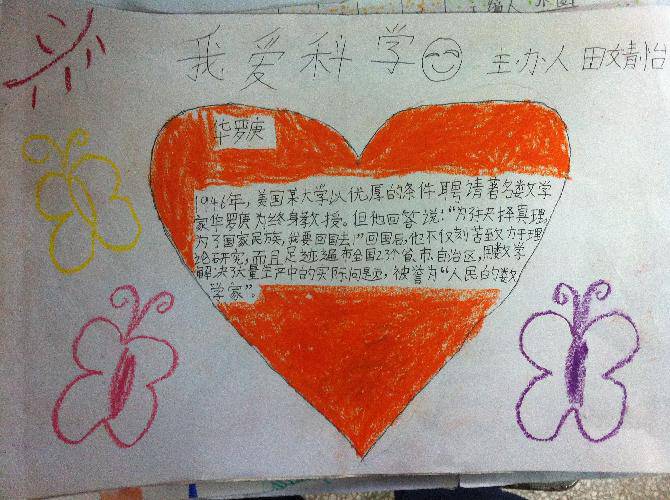 编人
我爱科学 主办人 田婧怡
华罗庚
1946年，美国某大学以优厚的条件聘请著名数学
家华罗庚为终身教授。但他回答说："为了抉择真理，
为了国家民族，我要回国去！"回国后，他不仅刻苦致力于理
论研究，而且足迹遍布全国23个省市自治区，用数学
解决了大量生产中的实际问题，被誉为"人民的数
学家"。